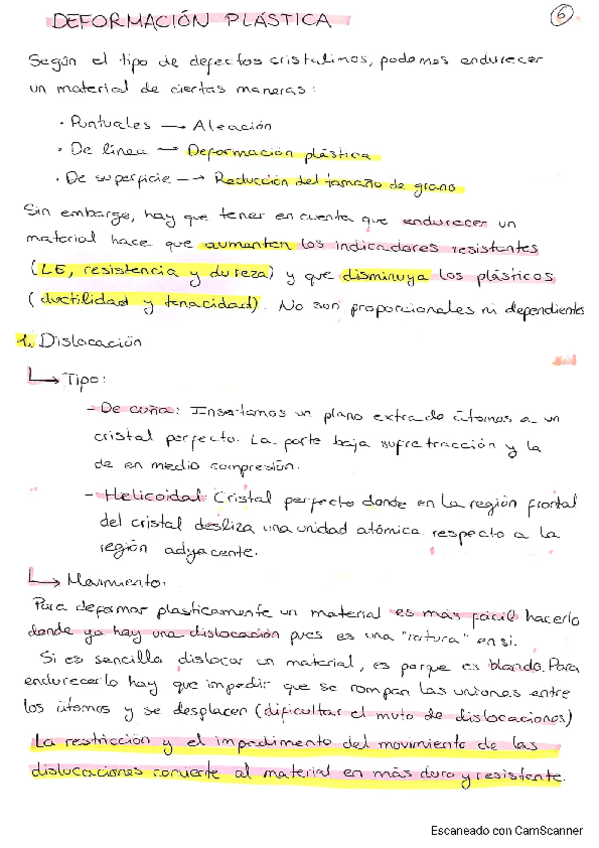 DEFORMACIÓN PLÁSTICA
6
Según el tipo de defectos cristalinos, podemos endurecer
un material de ciertas maneras:
· Puntuales → Aleación
· De línea → Deformación plástica
· De superficie → Reducción del tamaño de grano
Sin embargo, hay que tener en cuenta que endurecer un
material hace que aumenten los indicadores resistentes
(LE, resistencia y dureza) y que disminuya los plásticos
(ductilidad y tenacidad). No son proporcionales ni dependientes
1. Dislocación
↳ Tipo:
- De cuña: Insertamos un plano extra de átomos a un
cristal perfecto. La parte baja sufre tracción y la
de en medio compresión.
- Helicoidal: Cristal perfecto donde en la región frontal
del cristal desliza una unidad atómica respecto a la
región adyacente.
↳ Movimiento:
Para deformar plasticamente un material es más fácil hacerlo
donde ya hay una dislocación pues es una "rotura" en si.
Si es sencillo dislocar un material, es porque es blando. Para
endurecerlo hay que impedir que se rompan las uniones entre
los átomos y se desplacen (dificultar el mvto de dislocaciones)
La restricción y el impedimento del movimiento de las
dislocaciones convierte al material en más duro y resistente.
Escaneado con CamScanner